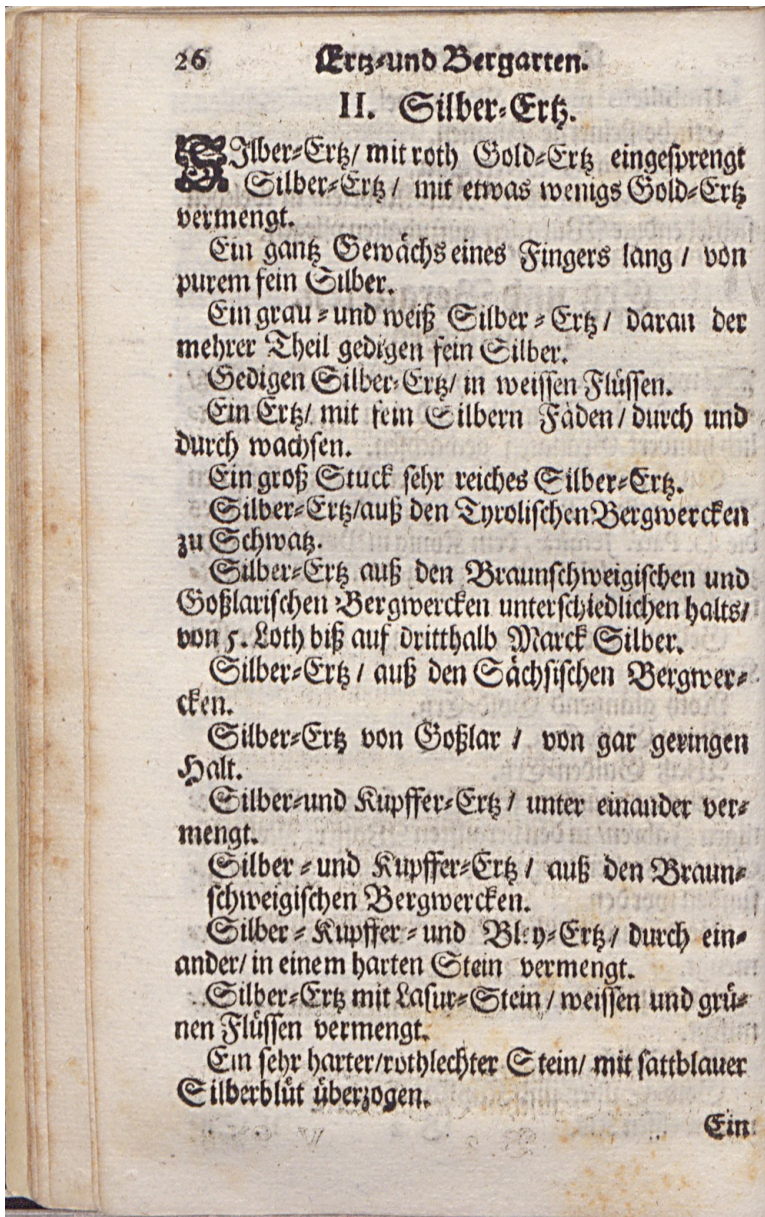 26 Ertz-und Bergarten.
II. Silber-Ertz.
SIlber-Ertz/ mit roth Gold-Ertz eingesprengt
Silber-Ertz / mit etwas wenigs Gold-Ertz
vermengt.
Ein gantz Gewächs eines Fingers lang / von
purem fein Silber.
Ein grau - und weiß Silber - Ertz / daran der
mehrer Theil gedigen fein Silber.
Gedigen Silber-Ertz/ in weissen Flüssen.
Ein Ertz/ mit fein Silbern Fäden / durch und
durch wachsen.
Ein groß Stuck sehr reiches Silber-Ertz.
Silber-Ertz/auß den Tyrolischen Bergwercken
zu Schwatz.
Silber-Ertz auß den Braunschweigischen und
Goßlarischen Bergwercken unterschiedlichen halts/
von 5. Loth biß auf dritthalb Marck Silber.
Silber-Ertz / auß den Sächsischen Bergwer-
cken.
Silber-Ertz von Goßlar / von gar geringen
Halt.
Silber-und Kupffer-Ertz / unter einander ver-
mengt.
Silber - und Kupffer-Ertz / auß den Braun-
schweigischen Bergwercken.
Silber - Kupffer - und Bley-Ertz / durch ein-
ander/ in einem harten Stein vermengt.
Silber-Ertz mit Lasur-Stein / weissen und grü-
nen Flüssen vermengt.
Ein sehr harter/rothlechter Stein/ mit sattblauer
Silberblüt überzogen.
Ein